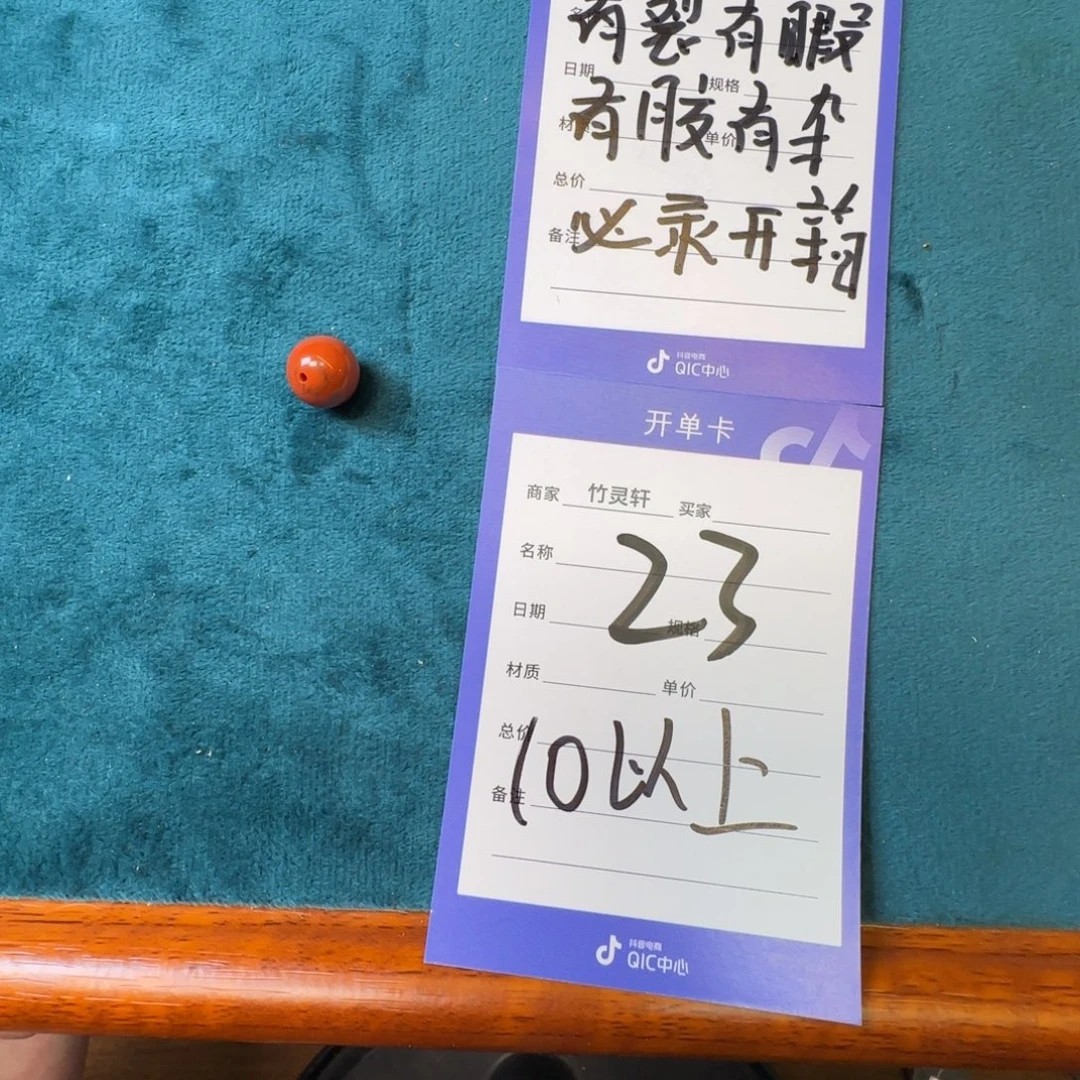 有裂有暇
日期 规格
有胶有杂
材 单价
总价
备注
必录开箱
抖音电商
QIC中心
开单卡
商家 竹灵轩 买家
名称
23
日期 规格
材质 单价
总价
10以上
备注
抖音电商
QIC中心